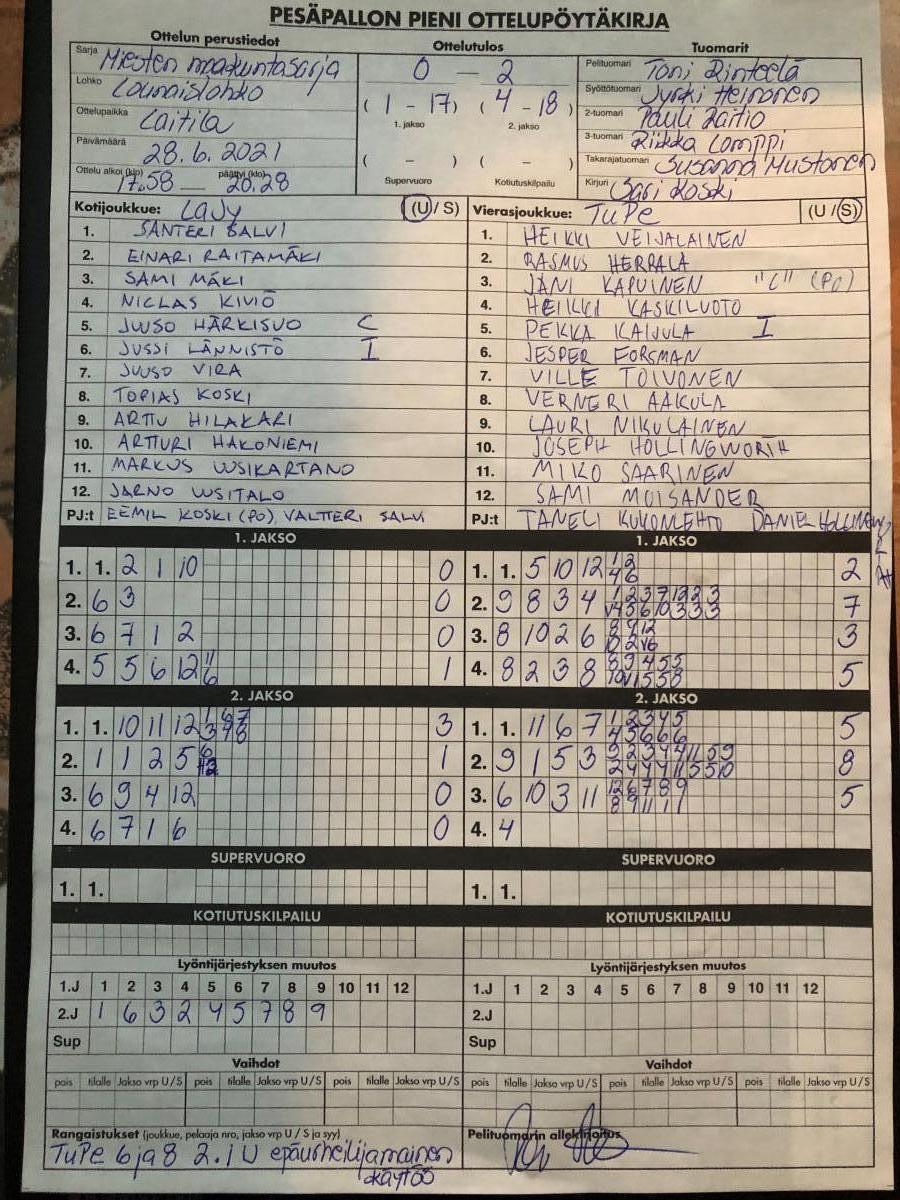 PESÄPALLON PIENI OTTELUPÖYTÄKIRJA
Ottelun perustiedot
Ottelutulos
Tuomarit
Sarja Miesten maakuntasarja
0 – 2
Pelituomari Toni Rinteelä
Lohko Lounaislohko
Syöttötuomari Jyrki Heinonen
Ottelupaikka Laitila
(1 – 17) (4 – 18)
1. jakso 2. jakso
2-tuomari Pauli Raitio
Päivämäärä 28.6.2021
3-tuomari Riikka Lomppi
Ottelu alkoi (klo) päättyi (klo)
17.58 — 20.28
( – ) ( – )
Supervuoro Kotiutuskilpailu
Takarajatuomari Susanna Mustonen
Kirjuri Sari Koski
Kotijoukkue: LaJy (U / S)
Vierasjoukkue: TuPe (U / S)
1. SANTERI SALVI
2. EINARI RAITAMÄKI
3. SAMI MÄKI
4. NICLAS KIVIÖ
5. JUUSO HÄRKISUO C
6. JUSSI LÄNNISTÖ I
7. JUUSO VIRA
8. TOPIAS KOSKI
9. ARTTU HILAKARI
10. ARTTURI HAKONIEMI
11. MARKUS UUSIKARTANO
12. JARNO UUSITALO
PJ:t EEMIL KOSKI (PO), VALTTERI SALVI
1. HEIKKI VEIJALAINEN
2. RASMUS HERRALA
3. JANI KAPUINEN "C" (PO)
4. HEIKKI KASKILUOTO
5. PEKKA KAIJULA I
6. JESPER FORSMAN
7. VILLE TOIVONEN
8. VERNERI AAKULA
9. LAURI NIKULAINEN
10. JOSEPH HOLLINGWORTH
11. MIIKO SAARINEN
12. SAMI MOISANDER
PJ:t TANELI KUKONLEHTO DANIEL
1. JAKSO
1. 1. 2 1 10 0
2. 6 3 0
3. 6 7 1 2 0
4. 5 5 6 12 11 6 1
1. JAKSO
1. 1. 5 10 12 1 2 4 6 2
2. 9 8 3 4 7
3. 8 10 2 6 3
4. 8 2 3 8 5
2. JAKSO
1. 1. 10 11 12 3
2. 1 1 2 5 1
3. 6 9 4 12 0
4. 6 7 1 6 0
2. JAKSO
1. 1. 11 6 7 1 2 3 4 5 4 5 6 6 6 5
2. 9 1 5 3 8
3. 6 10 3 11 5
4. 4
SUPERVUORO
1. 1.
SUPERVUORO
1. 1.
KOTIUTUSKILPAILU
KOTIUTUSKILPAILU
Lyöntijärjestyksen muutos
1.J 1 2 3 4 5 6 7 8 9 10 11 12
2.J 1 6 3 2 4 5 7 8 9
Sup
Lyöntijärjestyksen muutos
1.J 1 2 3 4 5 6 7 8 9 10 11 12
2.J
Sup
Vaihdot
pois tilalle Jakso vrp U / S pois tilalle Jakso vrp U / S pois tilalle Jakso vrp U / S
Vaihdot
pois tilalle Jakso vrp U / S pois tilalle Jakso vrp U / S pois tilalle Jakso vrp U / S
Rangaistukset (joukkue, pelaaja nro, jakso vrp U / S ja syy)
TuPe 6 ja 8 2.1 U epäurheilijamainen
käytös
Pelituomarin allekirjoitus